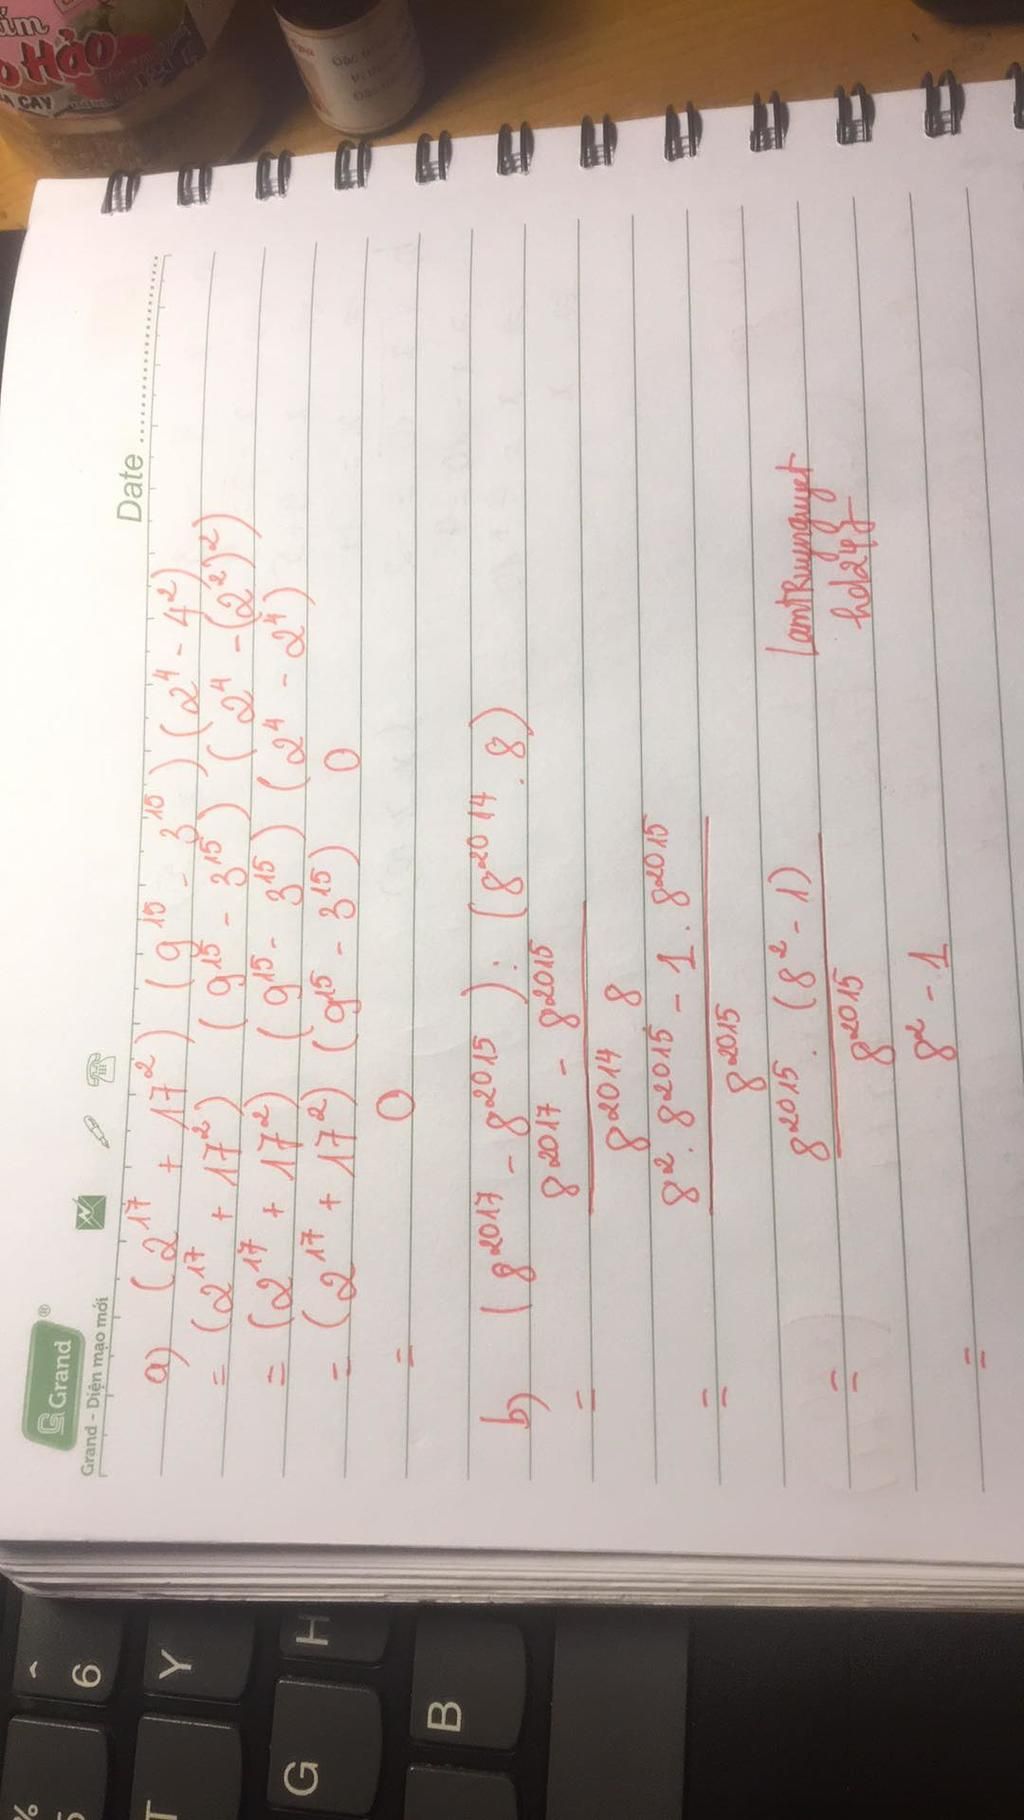 Grand
Grand - Diện mạo mới
Date
a) (2^17 + 17^2) (9^15 - 3^15) (2^4 - 4^2)
= (2^17 + 17^2) (9^15 - 3^15) (2^4 - (2^2)^2)
= (2^17 + 17^2) (9^15 - 3^15) (2^4 - 2^4)
= (2^17 + 17^2) (9^15 - 3^15) 0
= 0
b) (8^2017 - 8^2015) : (8^2014 . 8)
= 8^2017 - 8^2015
8^2014 8
= 8^2 . 8^2015 - 1 . 8^2015
8^2015
= 8^2015 . (8^2 - 1)
8^2015
= 8^2 - 1
Hảo
CAY
^
6
%
5
T
Y
G
H
B